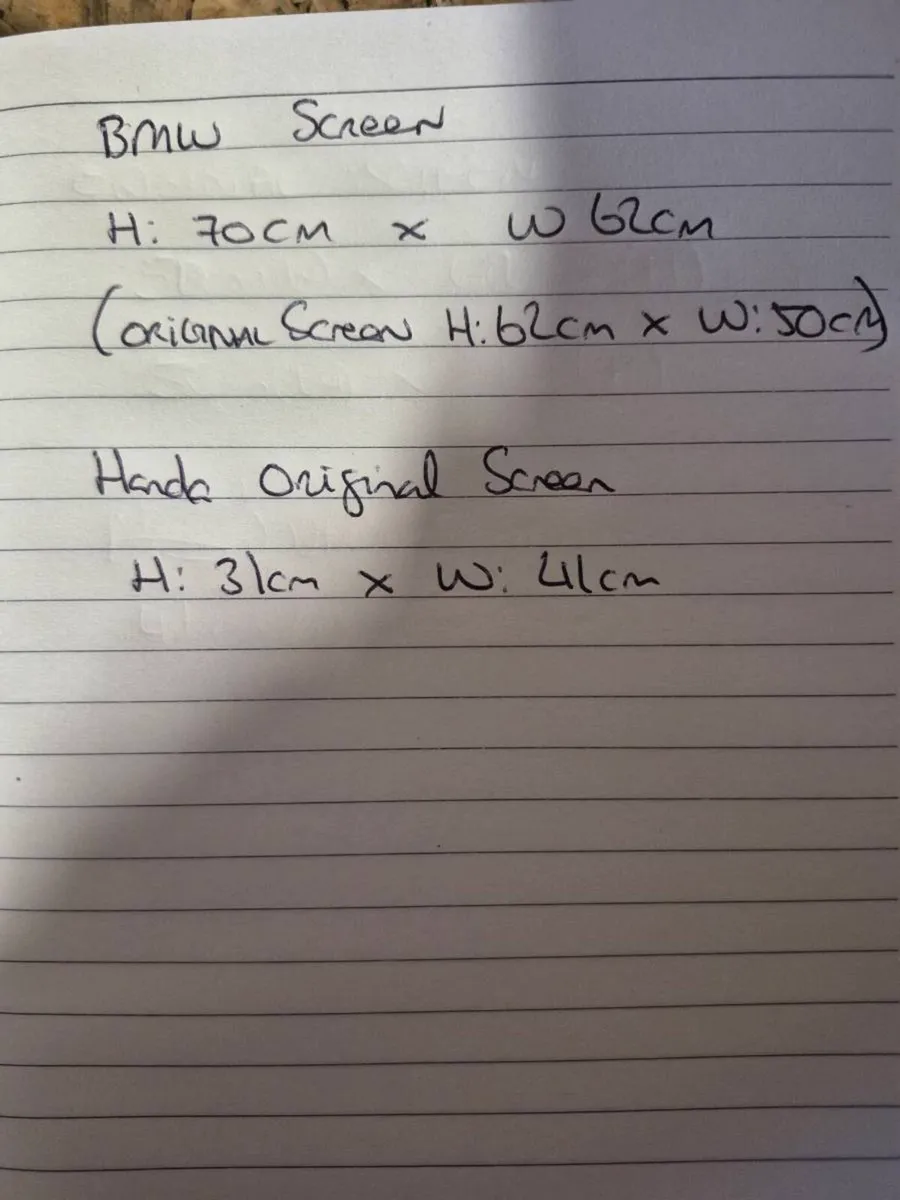 BMW Screen
H: 70CM x W 62CM
(ORIGINAL Screen H:62cm x W:50cm)
Honda Original Screen
H: 31cm x W: 41cm